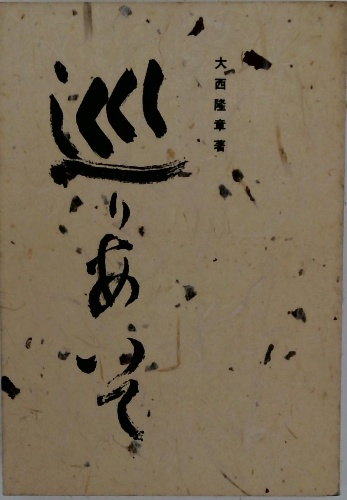 大西隆章著
巡りあいて